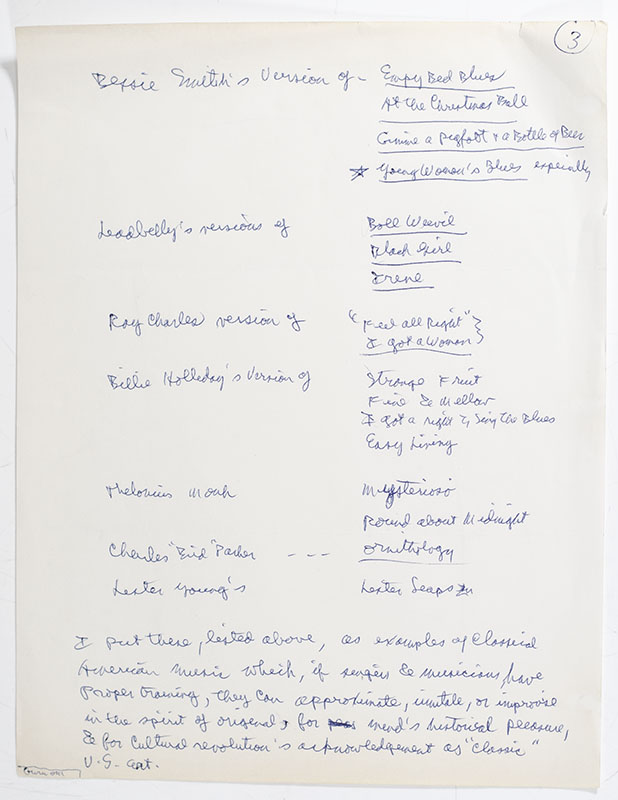 3
Bessie Smith's Version of - Empy Bed Blues
At the Christmas Ball
Gimme a Pigfoot & a Bottle of Beer
Young Woman's Blues especially
Leadbelly's versions of Boll Weevil
Black Girl
Irene
Ray Charles version of "Feel all Right"
I got a Woman
Billie Holleday's Version of Strange Fruit
Fine & Mellow
I got a right to Sing the Blues
Easy Living
Thelonius Monk Mysterioso
Round about Midnight
Charles "Bird" Parker --- Ornithology
Lester Young's Lester Leaps In
I put these, listed above, as examples of Classical
American music which, if singers & musicians have
Proper training, they can approximate, imitate, or improvise
in the spirit of original, for mind's historical pleasure,
& for Cultural revolution's acknowledgement as "Classic"
U.S. art.